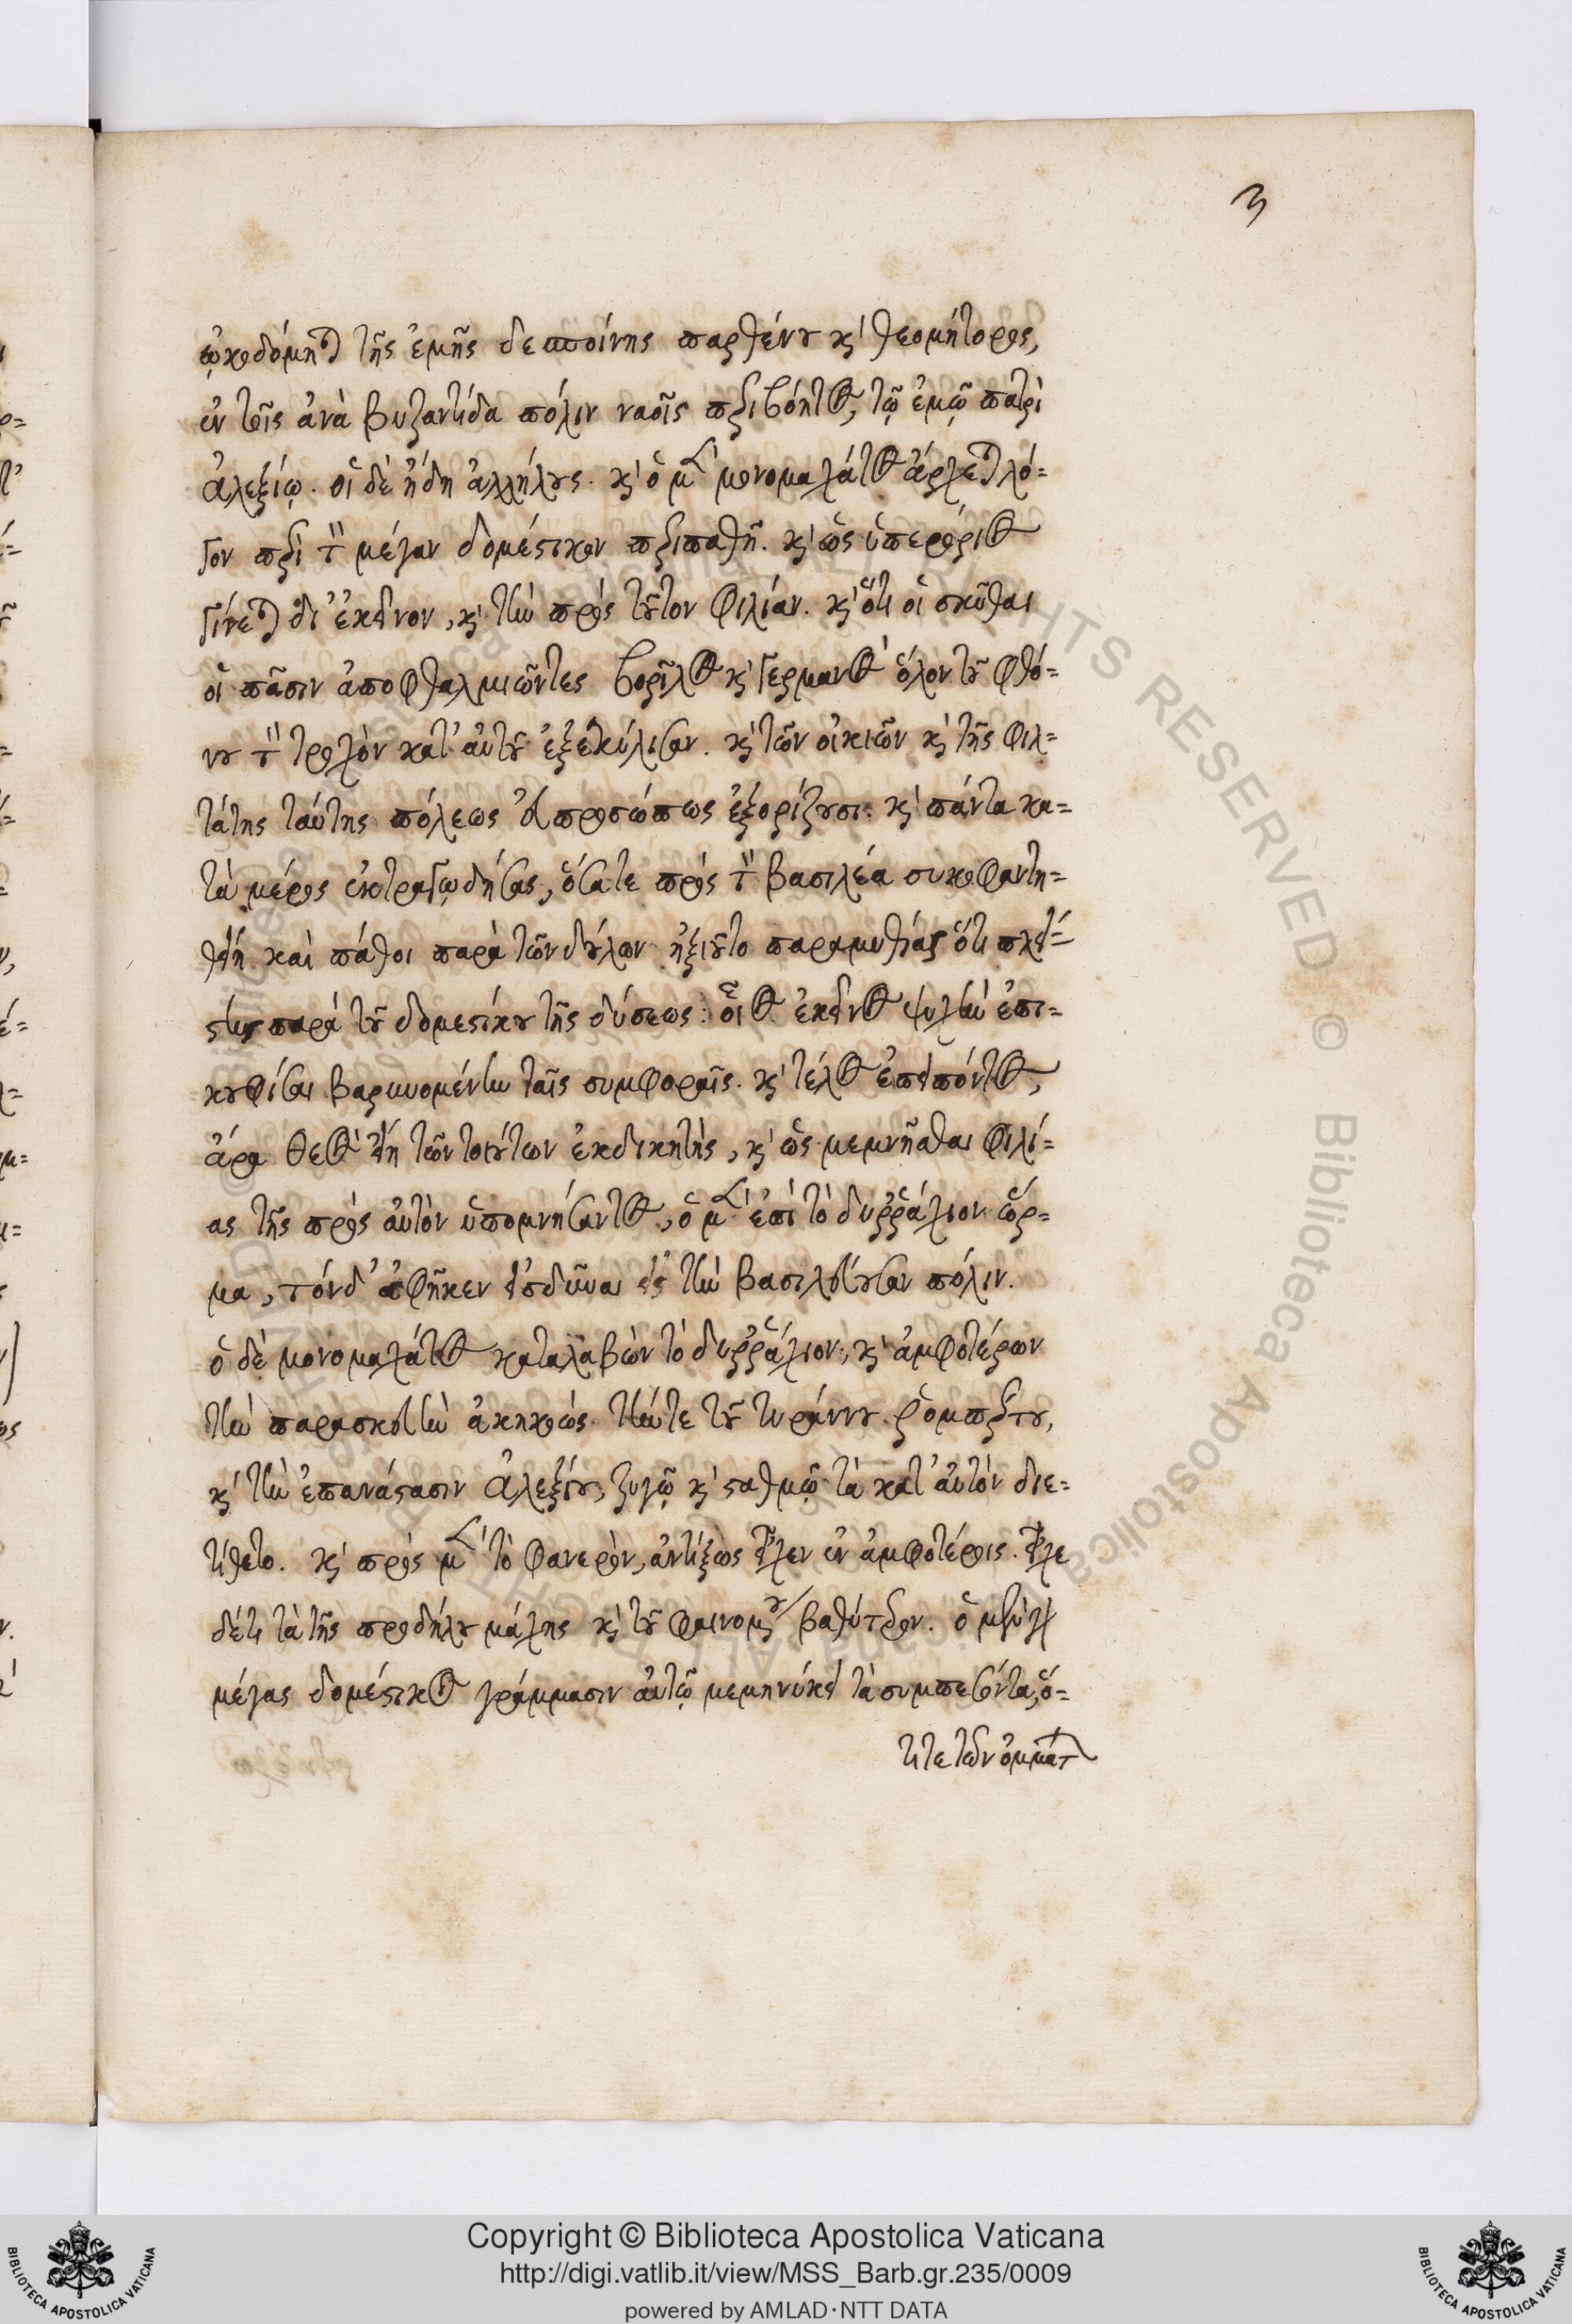 3
ᾠκοδόμηται τῆς ἐμῆς δεσποίνης παρθένου κ̀ θεομήτορος,
ἐν τοῖς ἀνὰ βυζαντίδα πόλιν ναοῖς περιβόητος, τῷ ἐμῷ πατρὶ
ἀλεξίῳ. οἱ δὲ ἤδη ἀλλήλους. κ̀ ὁ μὲν μονομαχάτος ἄρχεται λό=
γον περὶ τὸν μέγαν δομέστικον περιπαθῆ. κ̀ ὡς ὑπερόριος
γίνεται δι' ἐκεῖνον, κ̀ τὴν πρὸς τοῦτον φιλίαν. κ̀ ὅτι οἱ σκῦθαι
οἱ πᾶσιν ἀποφθαλμιῶντες βορῖλος κ̀ γερμανὸς ὅλον τοῦ φθό=
νου τὸν τροχὸν κατ' αὐτοῦ ἐξεκύλισαν. κ̀ τῶν οἰκιῶν κ̀ τῆς φιλ=
τάτης ταύτης πόλεως εὐπροσώπως ἐξορίζουσι. κ̀ πάντα κα=
τὰ μέρος ἐκτραγῳδήσας, ὅσα τε πρὸς τὸν βασιλέα συκοφαντη=
θείη καὶ πάθοι παρὰ τῶν δούλων ἠξιοῦτο παραμυθίας ὅτι πλεί=
στης παρὰ τοῦ δομεστίκου τῆς δύσεως. οἷος ἐκεῖνος ψυχὴν ἐπι=
κουφίσαι βαρυνομένην ταῖς συμφοραῖς. κ̀ τέλος ἐπειπόντος,
ἄρα θεὸς εἴη τῶν τοιούτων ἐκδικητὴς, κ̀ ὡς μεμνῆσθαι φιλί=
ας τῆς πρὸς αὐτὸν ὑπομνήσαντος, ὁ μὲν ἐπὶ τὸ δυρράχιον ὥρ=
μα, τόνδ' ἀφῆκεν εἰσδῦναι εἰς τὴν βασιλεύουσαν πόλιν.
ὁ δὲ μονομαχάτος καταλαβὼν τὸ δυρράχιον, κ̀ ἀμφοτέρων
τὴν παρασκευὴν ἀκηκοὼς τήν τε τοῦ τυράννου ῥομπέρτου,
κ̀ τὴν ἐπανάστασιν ἀλεξίου, ζυγῷ κ̀ σταθμῷ τὰ κατ' αὐτὸν διε=
τίθετο. κ̀ πρὸς μὲν τὸ φανερὸν, ἀντιξόως εἶχεν ἐν ἀμφοτέροις. εἶχε
δέ τι τὰ τῆς προδήλου μάχης κ̀ τοῦ φαινομένου βαθύτερον. ὁ μὲν γὰρ
μέγας δομέστικος γράμμασιν αὐτῷ μεμηνύκει τὰ συμπεσόντα, ὅ=
τι τε τῶν ὀμμάτ
Copyright © Biblioteca Apostolica Vaticana
http://digi.vatlib.it/view/MSS_Barb.gr.235/0009
powered by AMLAD·NTT DATA
BIBLIOTECA APOSTOLICA VATICANA
BIBLIOTECA APOSTOLICA VATICANA